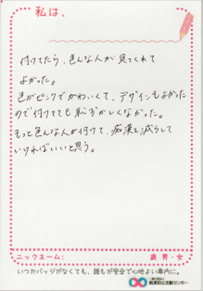 私は、
付けてたら、色んな人が見てくれて
よかった。
色がピンクでかわいくて、デザインもよかった
ので付けてても恥ずかしくなかった。
もっと色んな人が付けて、痴漢を減らして
いければいいと思う。
ニックネーム:
歳 男・女
いつかバッジがなくても、誰もが安全で心地よい車内に。
痴漢抑止活動センター